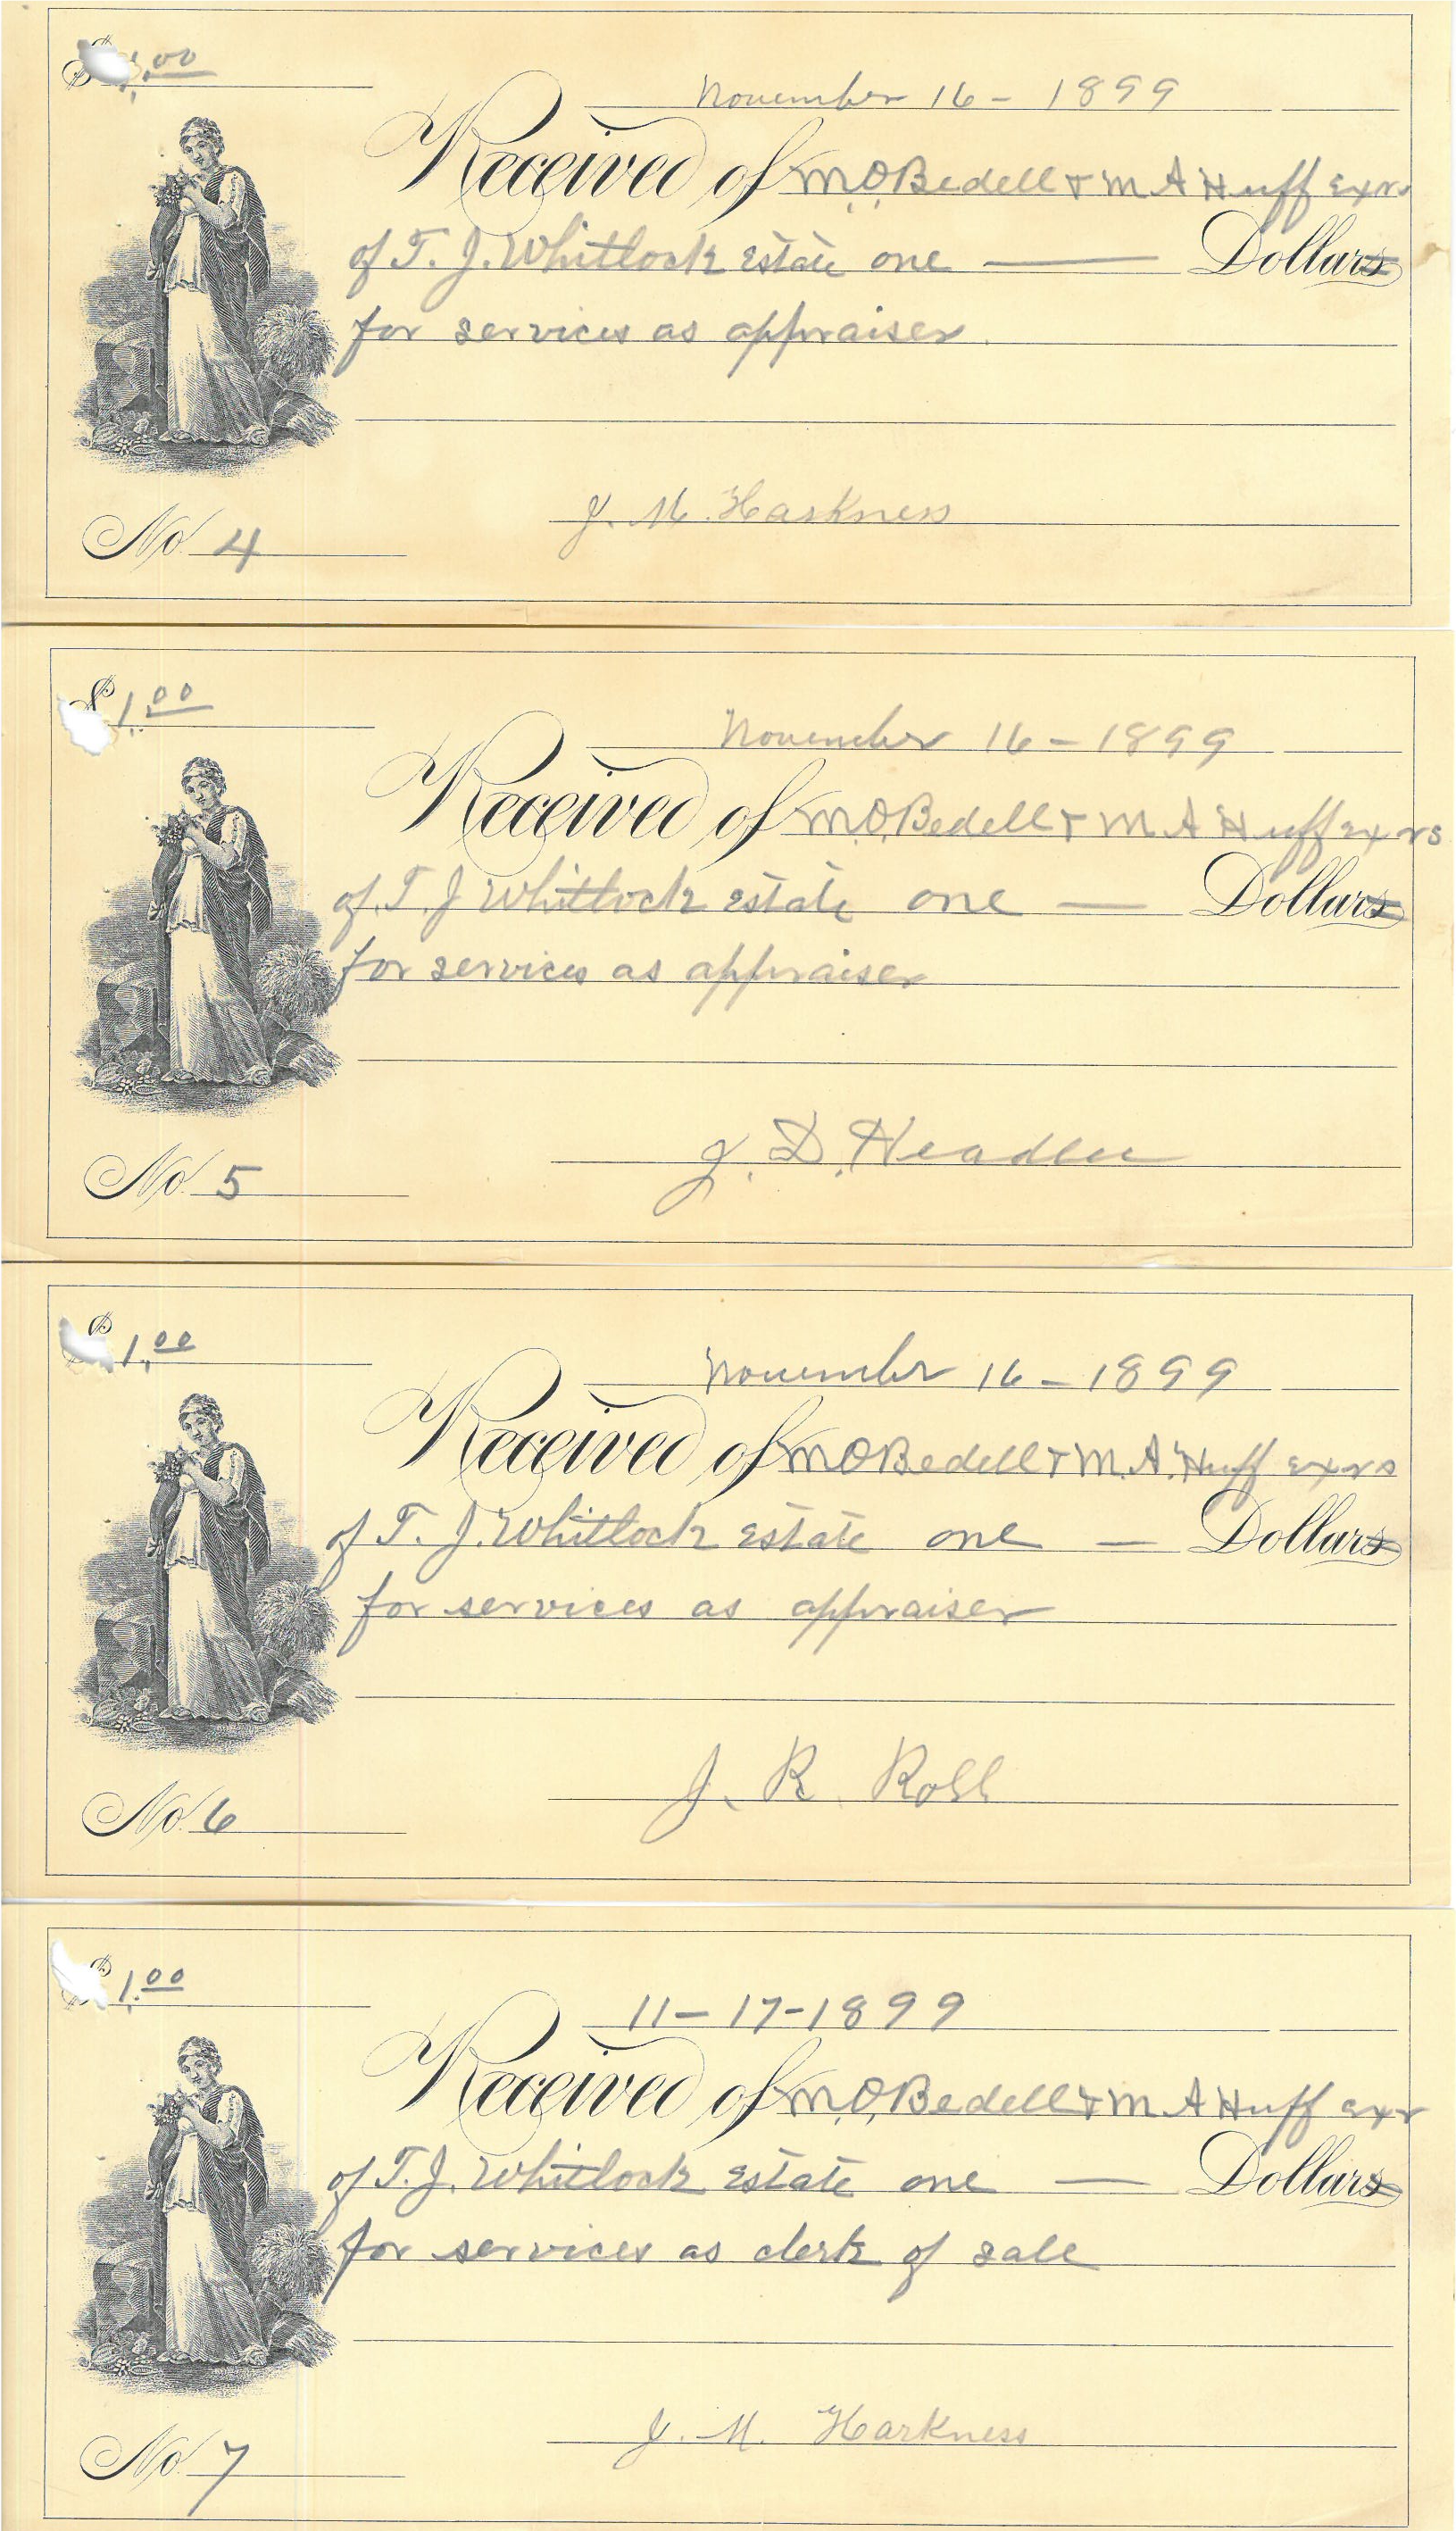 $1.00
November 16 - 1899
Received of M.O. Bedell + M A Huff exrs
of T. J. Whitlock Estate one — Dollars
for services as appraiser
J. M. Harkness
No. 4
$1.00
November 16 - 1899
Received of M.O. Bedell + M A Huff exrs
of T. J Whitlock Estate one — Dollars
for services as appraiser
J. D. Headlee
No. 5
$1.00
November 16 - 1899
Received of M O Bedell + M. A. Huff exrs
of T. J. Whitlock Estate one — Dollars
for services as appraiser
J. R. Robb
No. 6
$1.00
11 - 17 - 1899
Received of M.O. Bedell + M A Huff exr
of T. J. Whitlock Estate one — Dollars
for services as clerk of sale
J. M. Harkness
No. 7